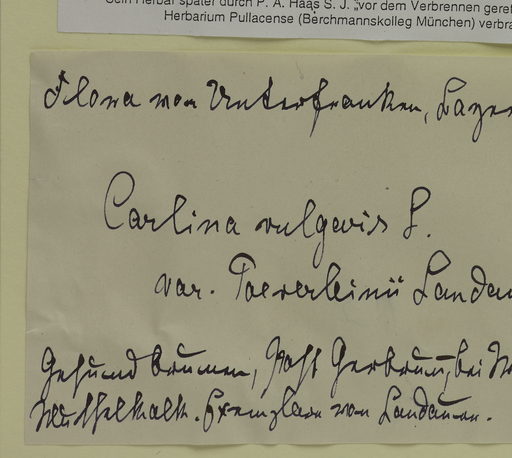 Sein Herbar später durch P. A. Haas S. J. „vor dem Verbrennen geret
Herbarium Pullacense (Berchmannskolleg München) verbra
Flora von Unterfranken, Bayer
Carlina vulgaris L.
var. Landau
Gesundbrunnen, bei
Muschelkalk. Exemplare von Landauer.